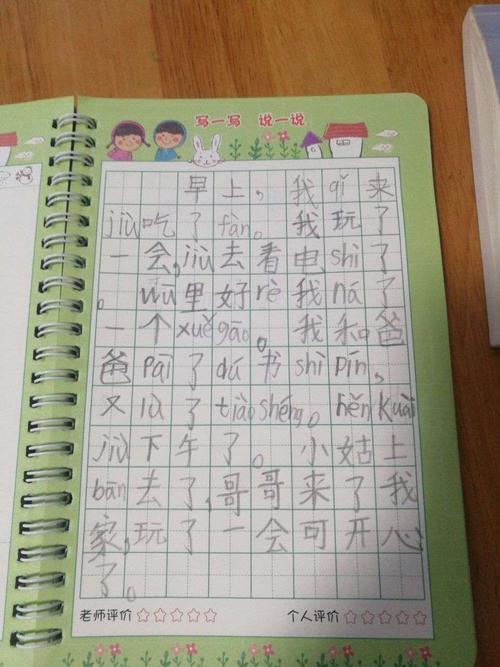 写一写 说一说
早上，我qǐ来
jiù吃了fàn。我玩了
一会，jiù去看电shì了
。wū里好rè我ná了
一个xuěgāo。我和爸
爸pāi了dú书shìpín，
又lù了tiàoshéng。hěnkuài
jiù下午了。小姑上
bān去了，哥哥来了我
家，玩了一会可开心
了。
老师评价☆☆☆☆☆ 个人评价☆☆☆☆☆